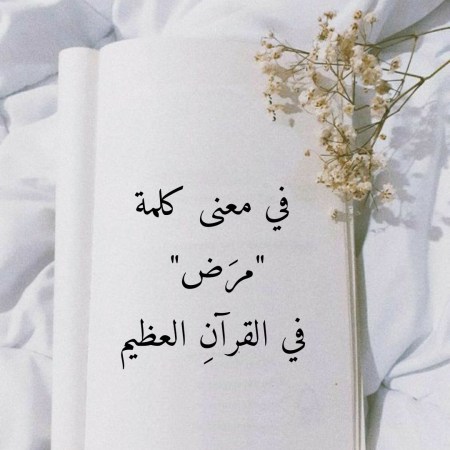 في معنى كلمة
"مرَض"
في القرآنِ العظيم